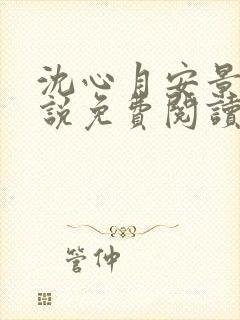 沈心月安景
說免費閱讀
管仲